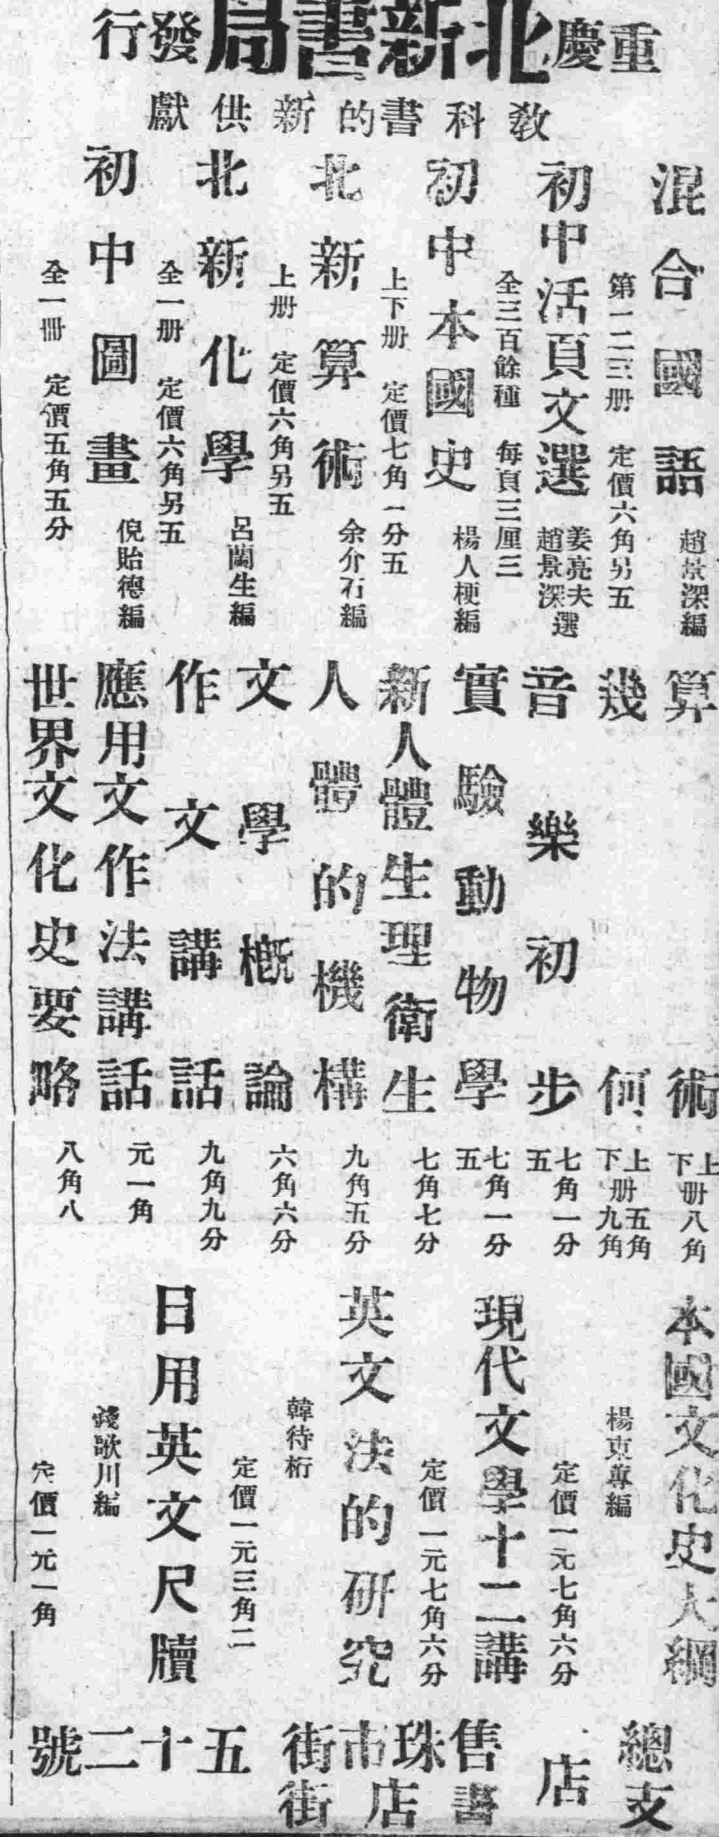 重慶北新書局發行
教科書的新供獻
混合國語
趙景深編
第一二三册 定價六角另五
初中活頁文選
姜亮夫
趙景深 選
全三百餘種 每頁三厘三
初中本國史
楊人楩編
上下册 定價七角一分五
北新算術
余介石編
上册 定價六角另五
北新化學
呂蘭生編
全一册 定價六角另五
初中圖畫
倪貽德編
全一册 定價五角五分
算術
上
下 册八角
幾何
上册五角
下册九角
音樂初步
七角一分五
實驗動物學
七角一分五
新人體生理衛生
七角七分
人體的機構
九角五分
文學概論
六角六分
作文講話
九角九分
應用文作法講話
元一角
世界文化史要略
八角八
本國文化史大綱
楊東蓴編
定價一元七角六分
現代文學十二講
定價一元七角六分
英文法的研究
韓待桁
定價一元三角二
日用英文尺牘
錢歌川編
定價一元一角
總店
支
售珠市街五十二號
書店街